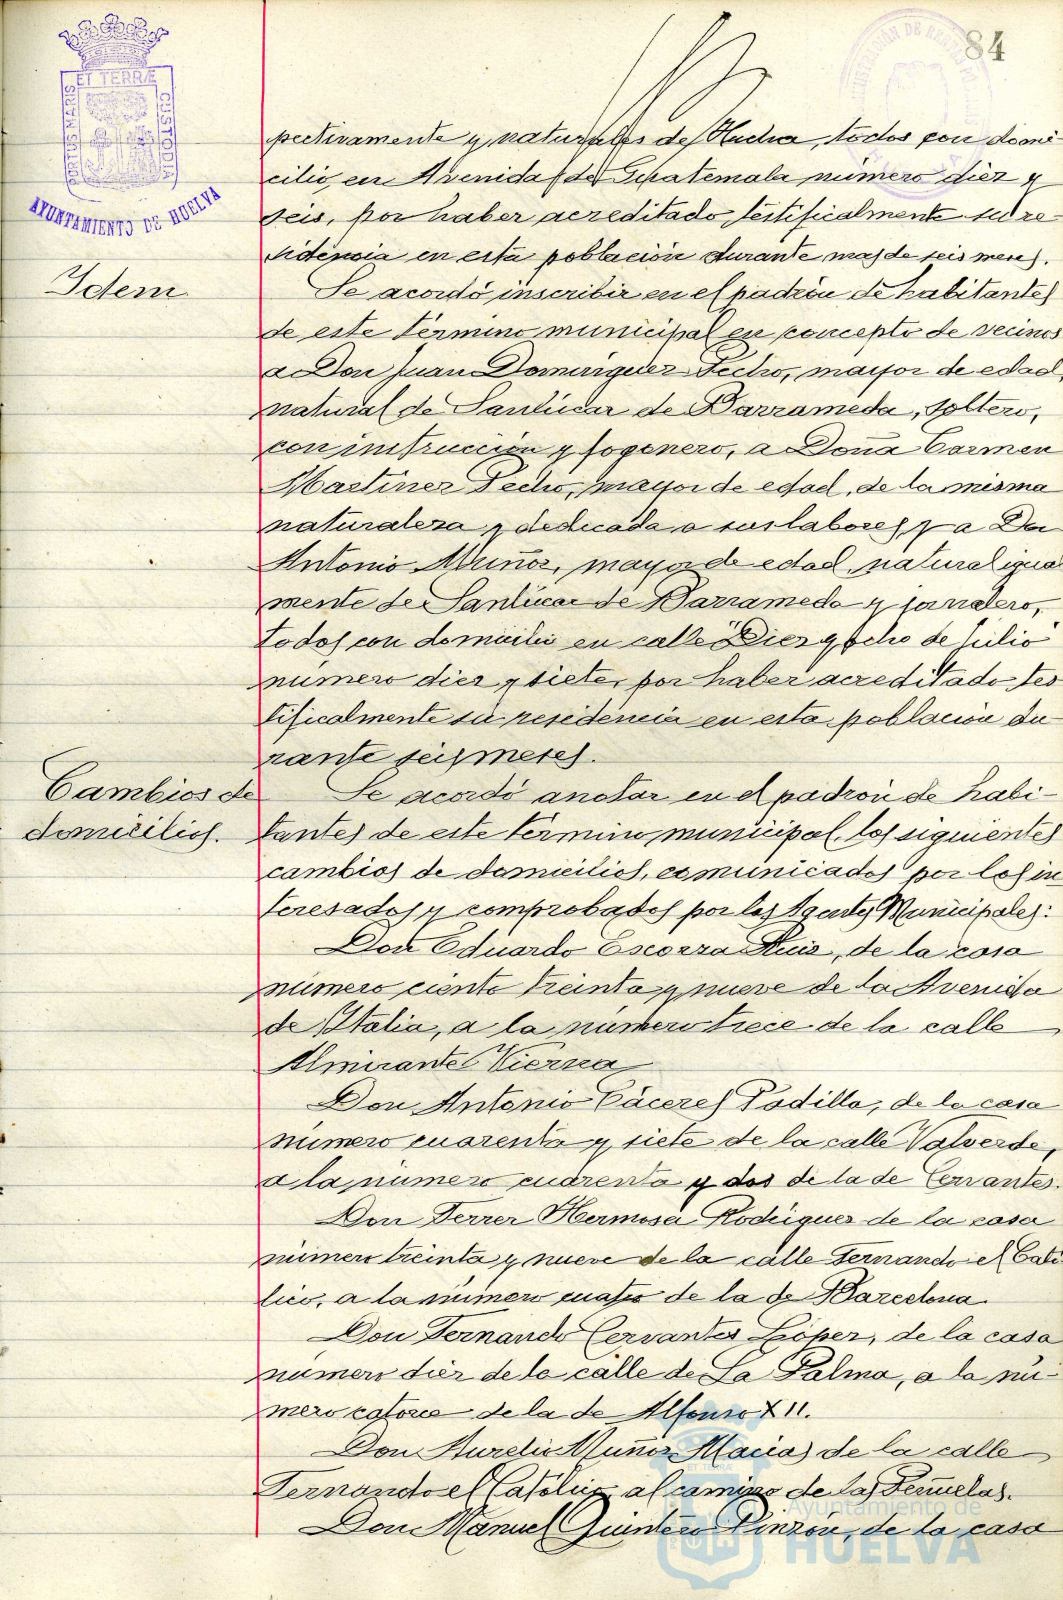 84
ET TERRÆ
PORTUS MARIS
CUSTODIA
AYUNTAMIENTO DE HUELVA
pectivamente y naturales de Huelva, todos con domi-
cilio en Avenida de Guatemala número diez y
seis, por haber acreditado testificalmente su re-
sidencia en esta población durante mas de seis meses.
Idem.
Se acordó inscribir en el padrón de habitantes
de este término municipal en concepto de vecinos
a Don Juan Dominguez Pecho, mayor de edad,
natural de Sanlúcar de Barrameda, soltero,
con instrucción y fogonero, a Doña Carmen
Martinez Pecho, mayor de edad, de la misma
naturaleza y dedicada a sus labores, y a Don
Antonio Muñoz, mayor de edad, natural igual
mente de Sanlúcar de Barrameda y jornalero,
todos con domicilio en calle Diez y ocho de Julio
número diez y siete, por haber acreditado tes
tificalmente su residencia en esta población du-
rante seis meses.
Cambios de
domicilios.
Se acordó anotar en el padrón de habi-
tantes de este término municipal, los siguientes
cambios de domicilios, comunicados por los in
teresados y comprobados por los Agentes Municipales:
Don Eduardo Escorza Ruiz, de la casa
número ciento treinta y nueve de la Avenida
de Italia, a la número trece de la calle
Almirante Vierna
Don Antonio Cáceres Padilla, de la casa
número cuarenta y siete de la calle Valverde,
a la número cuarenta y dos de la de Cervantes.
Don Ferrer Hermosa Rodriguez de la casa
número treinta y nueve de la calle Fernando el Cató
lico, a la número cuatro de la de Barcelona.
Don Fernando Cervantes López, de la casa
número diez de la calle de La Palma, a la nú-
mero catorce de la de Alfonso XII.
Don Aurelio Muñoz Macias de la calle
Fernando el Católico, al camino de las Peñuelas.
Don Manuel Quintero Pinzón, de la casa
Ayuntamiento de
HUELVA